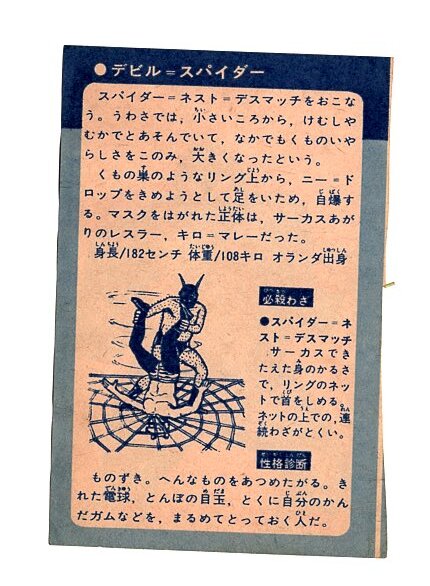 ●デビル=スパイダー
スパイダー=ネスト=デスマッチをおこな
う。うわさでは，小さいころから，けむしや
むかでとあそんでいて，なかでもくものいや
らしさをこのみ，大きくなったという。
くもの巣のようなリング上から，ニー=ド
ロップをきめようとして足をいため，自爆す
る。マスクをはがれた正体は，サーカスあが
りのレスラー，キロ=マレーだった。
身長/182センチ 体重/108キロ オランダ出身
必殺わざ
●スパイダー=ネ
スト=デスマッチ
．サーカスでき
たえた身のかるさ
で，リングのネッ
トで首をしめる。
ネットの上での，連
続わざがとくい。
性格診断
ものずき。へんなものをあつめたがる。き
れた電球，とんぼの目玉，とくに自分のかん
だガムなどを，まるめてとっておく人だ。